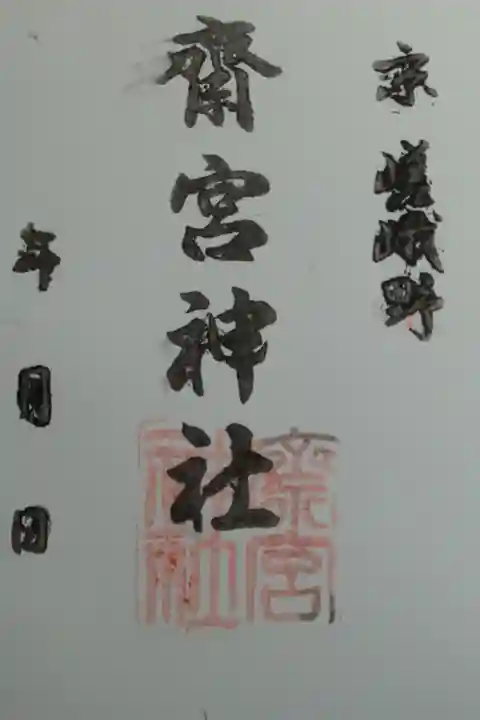 京嵯峨野
齋宮神社
年月日
斎宮神社